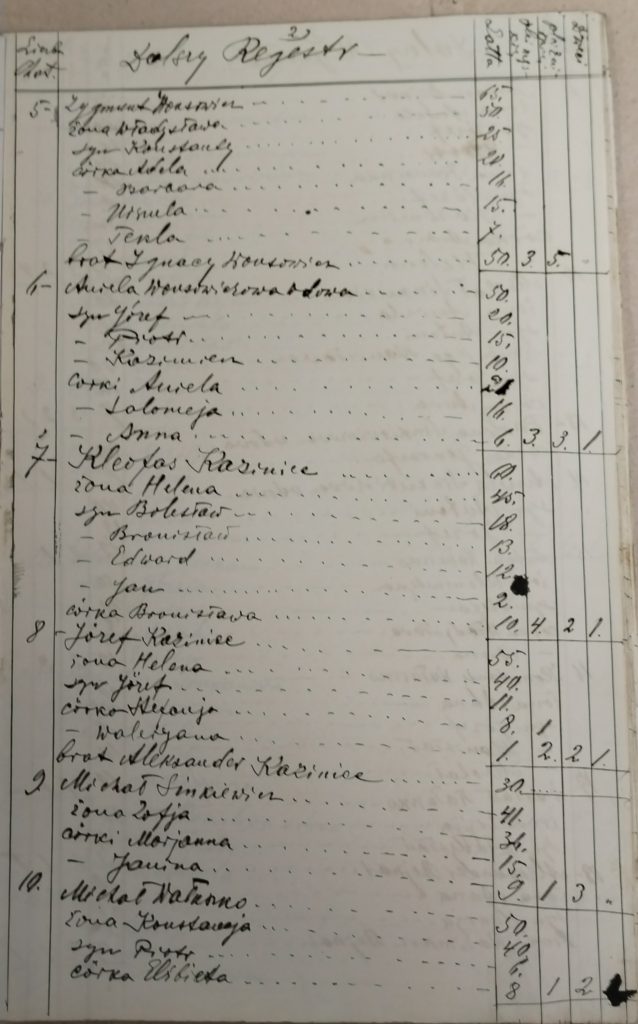 2
Dalszy Rejestr
Lata
5 - Zygmunt Wonsowicz 65.
żona Władysława 50.
syn Konstanty 25
córka Adela 20.
- Barbara 16
- 15.
- Tekla 7.
brat Ignacy Wonsowicz 50. 3. 5.
6 - Aniela Wonsowiczowa wdowa 50.
syn Józef 20.
- Piotr 15.
- Kazimierz 10.
córki Aniela
- Salomeja 16.
- Anna 6. 3. 3. 1.
7 - Kleofas Kaziniec
żona Helena 45.
syn Bolesław 18.
- Bronisław 13.
- Edward 12
- Jan 2.
córka Bronisława 10. 4. 2 1.
8 - Józef Kaziniec 55.
żona Helena 40.
syn Józef 11.
córka Stefanja 8. 1
- Walerjana 1. 2. 2 1.
brat Aleksander Kaziniec 30
9 Michał Sinkiewicz 41.
żona Zofja 36.
córki Marjanna 15.
- Janina 9. 1 3
10. Michał 50.
żona Konstancja 40.
syn Piotr 6.
córka Elżbieta 8 1 2